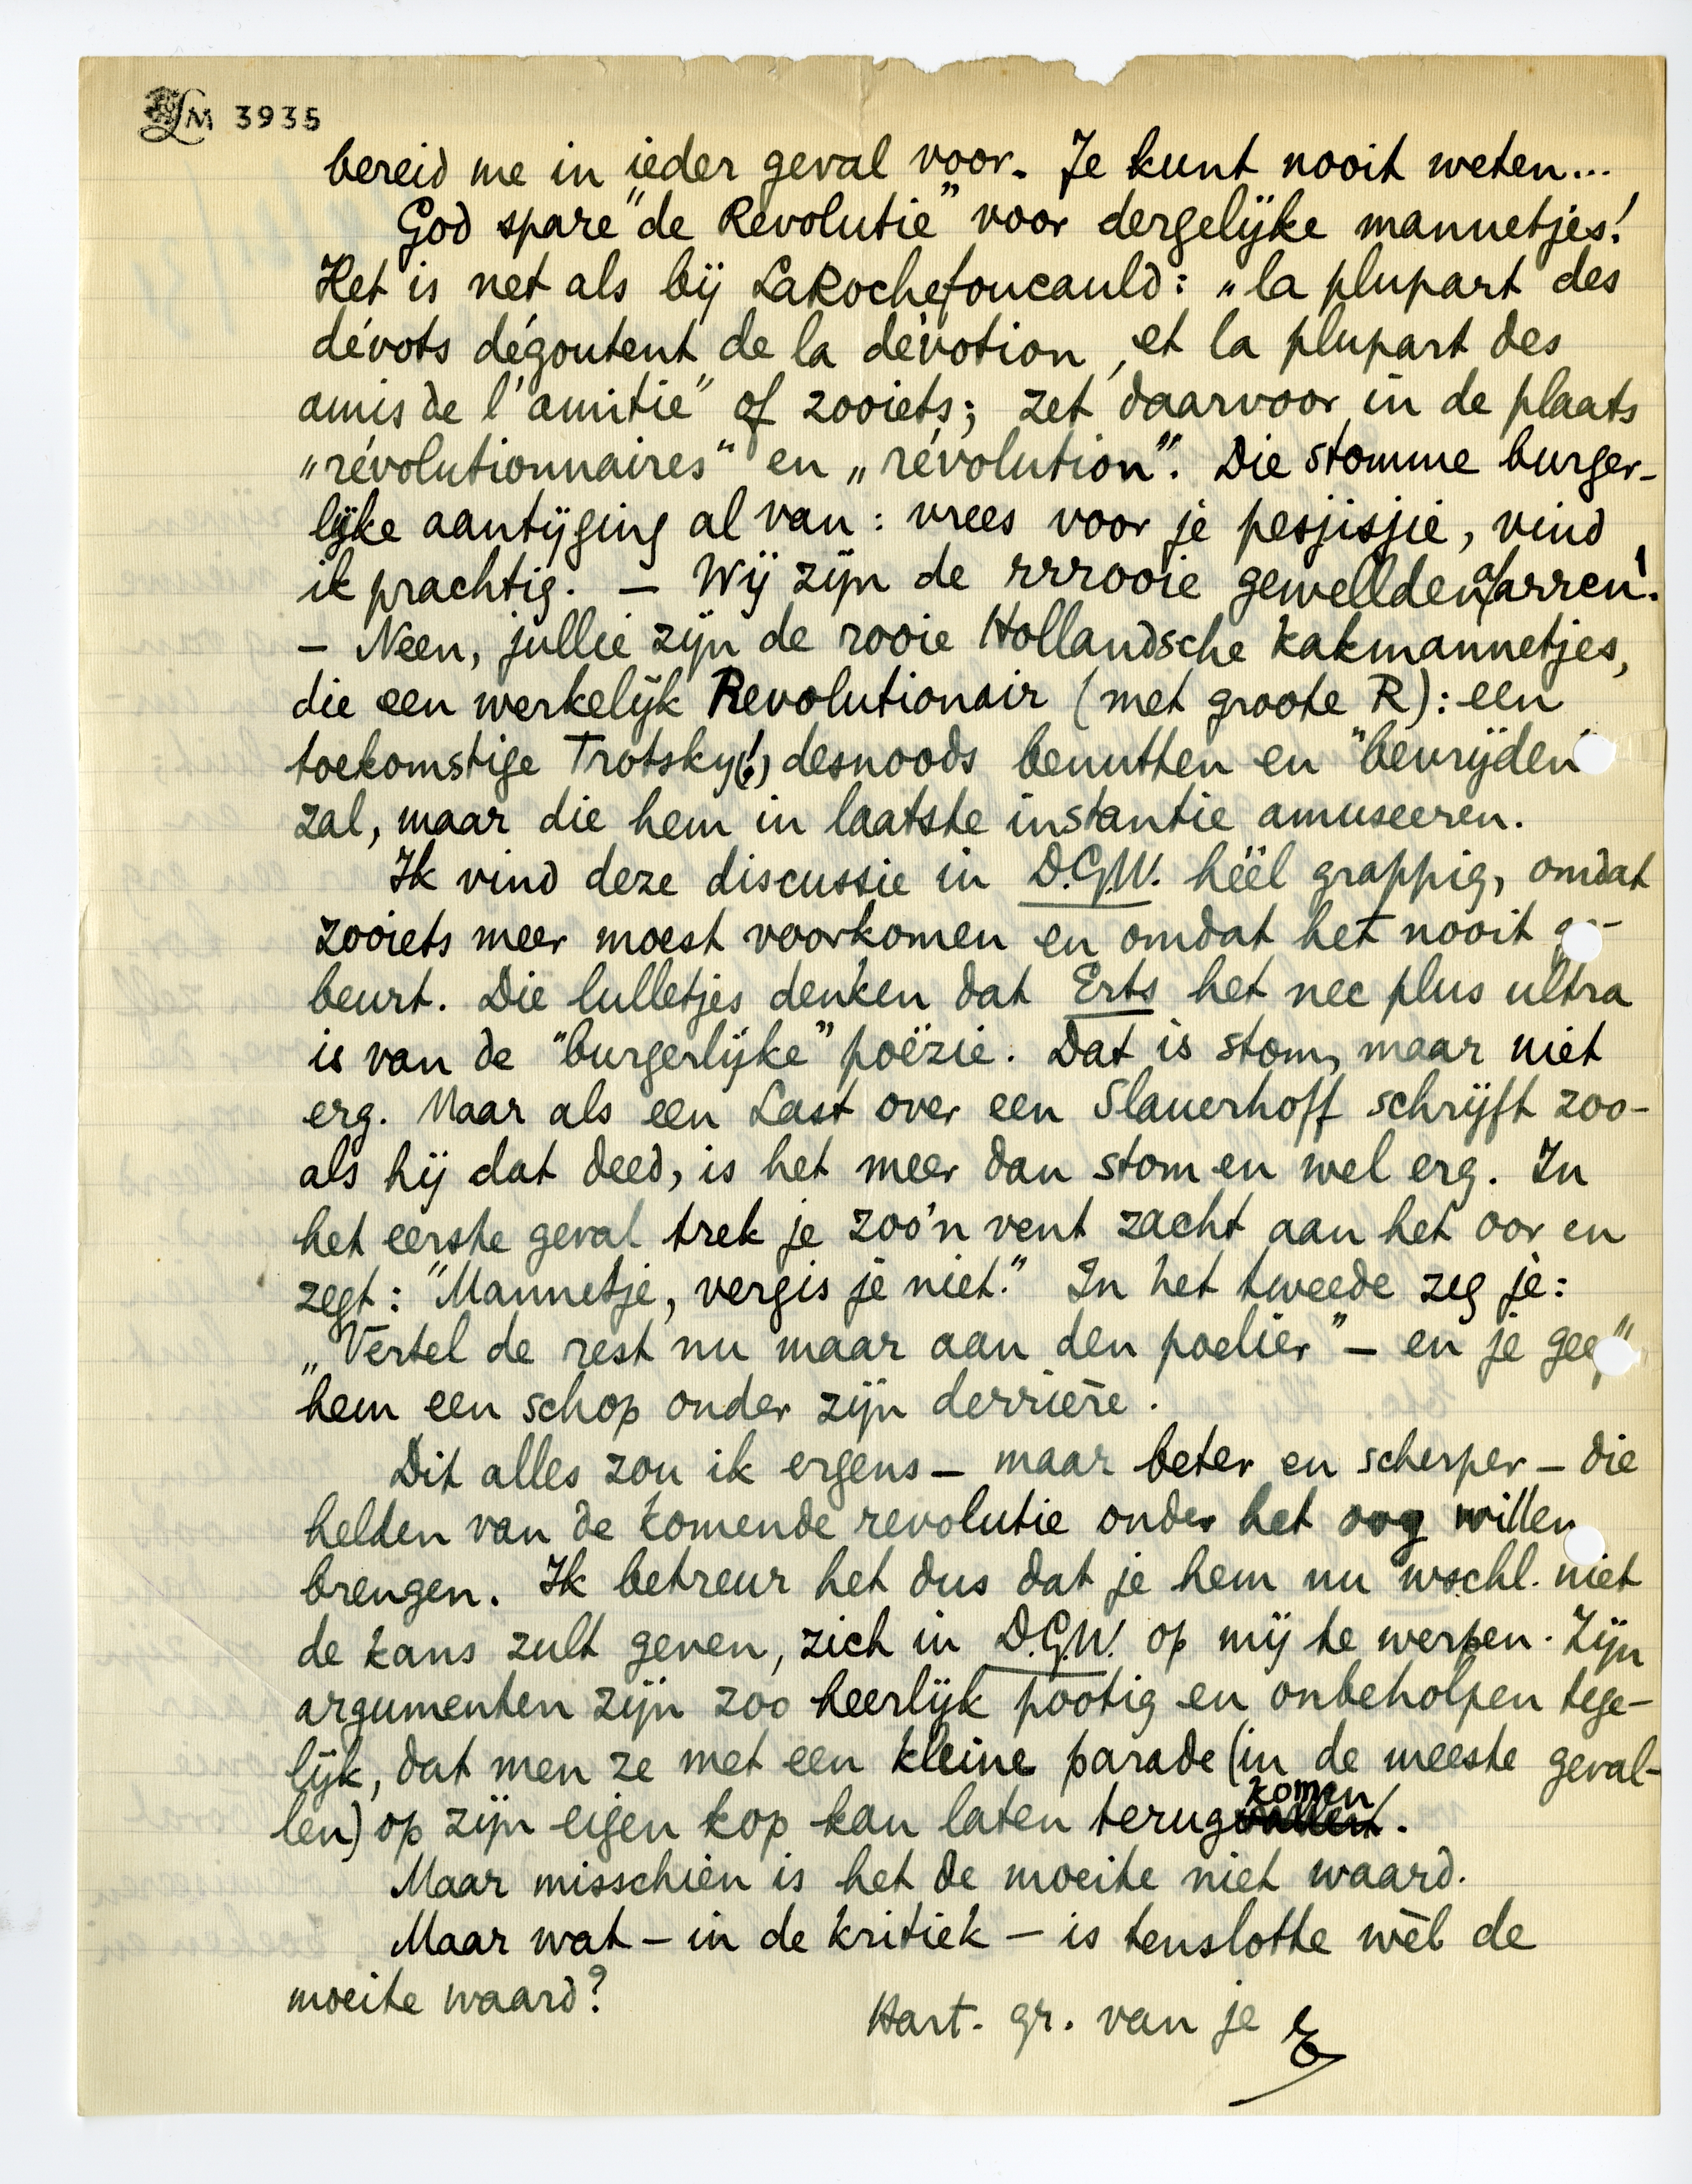 LM 3935
bereid me in ieder geval voor. Je kunt nooit weten...
God spare "de Revolutie" voor dergelijke mannetjes!
Het is net als bij LaRochefoucauld: „la plupart des
dévots dégoutent de la dévotion, et la plupart des
amis de l'amitié" of zooiets; zet daarvoor in de plaats
„révolutionnaires" en „révolution". Die stomme burger-
lijke aantijging al van: vrees voor je pesjisjie, vind
ik prachtig. — Wij zijn de rrrooie gewelldenaarren!
— Neen, jullie zijn de rooie Hollandsche kakmannetjes,
die een werkelijk Revolutionair (met groote R): een
toekomstige Trotsky(!) desnoods benutten en "bevrijden"
zal, maar die hem in laatste instantie amuseeren.
Ik vind deze discussie in D.G.W. héél grappig, omdat
zooiets meer moest voorkomen en omdat het nooit ge-
beurt. Die lulletjes denken dat Erts het nec plus ultra
is van de "burgerlijke" poëzie. Dat is stom, maar niet
erg. Maar als een Last over een Slauerhoff schrijft zoo-
als hij dat deed, is het meer dan stom en wel erg. In
het eerste geval trek je zoo'n vent zacht aan het oor en
zegt: "Mannetje, vergis je niet." In het tweede zeg je:
„Vertel de rest nu maar aan den poelier" — en je geeft
hem een schop onder zijn derrière.
Dit alles zou ik ergens — maar beter en scherper — die
helden van de komende revolutie onder het oog willen
brengen. Ik betreur het dus dat je hem nu wschl. niet
de kans zult geven, zich in D.G.W. op mij te werpen. Zijn
argumenten zijn zoo heerlijk pootig en onbeholpen tege-
lijk, dat men ze met een kleine parade (in de meeste geval-
len) op zijn eigen kop kan laten terugkomen.
Maar misschien is het de moeite niet waard.
Maar wat — in de kritiek — is tenslotte wèl de
moeite waard?
Hart. gr. van je E